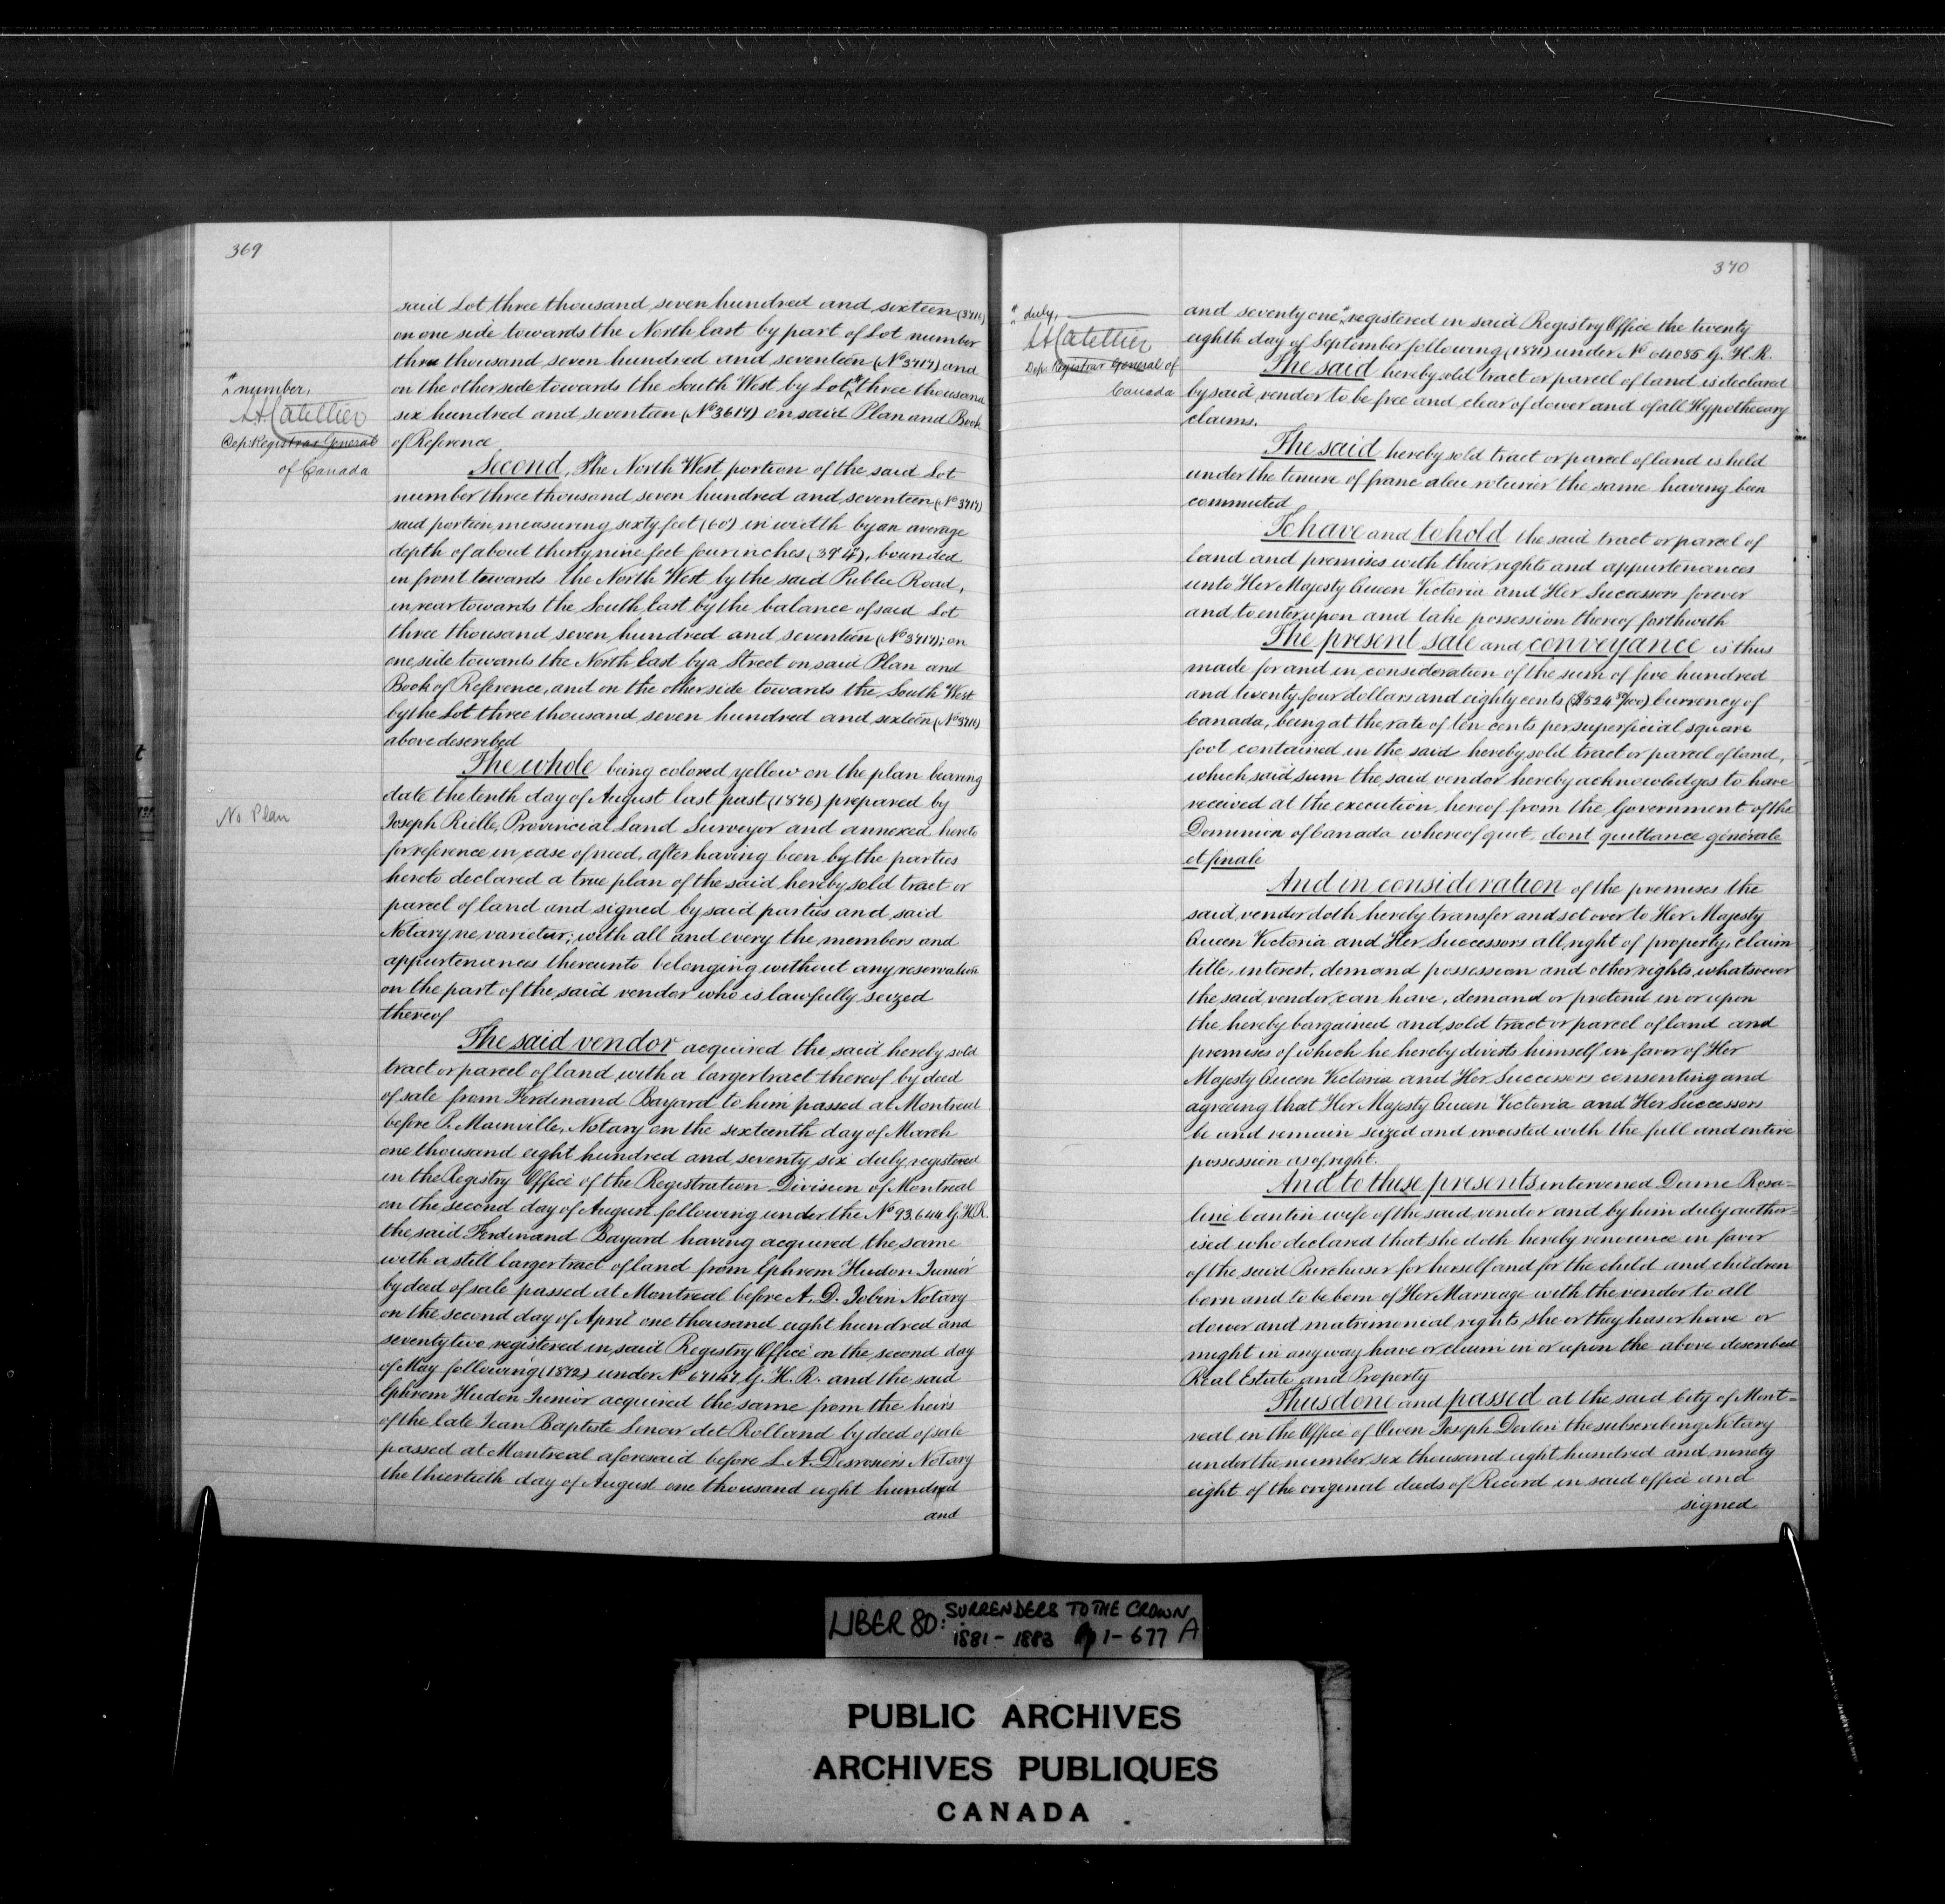 369
said Lot three thousand seven hundred and sixteen (3716)
on one side towards the North East by part of Lot number
three thousand seven hundred and seventeen (No 3717) and
on the other side towards the South West by Lot * three thousand
six hundred and seventeen (No 3617) on said Plan and Book
of Reference
* number,
Dep: Registrar General
of Canada
Second, The North West portion of the said Lot
number three thousand seven hundred and seventeen (No 3717)
said portion measuring sixty feet (60') in width by an average
depth of about thirty nine feet four inches (39' 4"), bounded
in front towards the North West by the said Public Road,
in rear towards the South East by the balance of said Lot
three thousand seven hundred and seventeen (No 3717); on
one side towards the North East by a Street on said Plan and
Book of Reference, and on the other side towards the South West
by the Lot three thousand seven hundred and sixteen (No 3716)
above described
The whole being colored yellow on the plan bearing
date the tenth day of August last past (1876) prepared by
No Plan
Joseph Rielle, Provincial Land Surveyor and annexed hereto
for reference in case of need, after having been by the parties
hereto declared a true plan of the said hereby sold tract or
parcel of land and signed by said parties and said
Notary ne varietur; with all and every the members and
appurtenances thereunto belonging without any reservation
on the part of the said vendor who is lawfully seized
thereof
The said vendor acquired the said hereby sold
tract or parcel of land with a larger tract thereof by deed
of sale from Ferdinand Bayard to him passed at Montreal
before P. Mainville, Notary on the sixteenth day of March
one thousand eight hundred and seventy six duly registered
in the Registry Office of the Registration Division of Montreal
on the second day of August following under the No 93.644 G. H. R.
the said Ferdinand Bayard having acquired the same
with a still larger tract of land from Ephrem Hudon Junior
by deed of sale passed at Montreal before A. D. Jobin Notary
on the second day of April one thousand eight hundred and
seventy two registered in said Registry Office on the second day
of May following (1872) under No 67147 G. H. R. and the said
Ephrem Hudon Junior acquired the same from the heirs
of the late Jean Baptiste Lenoir dit Rolland by deed of sale
passed at Montreal aforesaid before L. A. Desrosiers Notary
the thirtieth day of August one thousand eight hundred
and
370
and seventy one * registered in said Registry Office the twenty
eighth day of September following (1871) under No 64085 G. H. R.
* duly,
Dep: Registrar General of
Canada
The said hereby sold tract or parcel of land is declared
by said vendor to be free and clear of dower and of all Hypothecary
claims.
The said hereby sold tract or parcel of land is held
under the tenure of franc aleu roturier the same having been
commuted
To have and to hold the said tract or parcel of
land and premises with their rights and appurtenances
unto Her Majesty Queen Victoria and Her Successors forever
and to enter upon and take possession thereof forthwith
The present sale and conveyance is thus
made for and in consideration of the sum of five hundred
and twenty four dollars and eighty cents ($524 80/100) Currency of
Canada, being at the rate of ten cents per superficial square
foot contained in the said hereby sold tract or parcel of land,
which said sum the said vendor hereby acknowledges to have
received at the execution hereof from the Government of the
Dominion of Canada whereof quit. dont quittance générale
et finale
And in consideration of the premises the
said vendor doth hereby transfer and set over to Her Majesty
Queen Victoria and Her Successors all right of property, claim
title, interest, demand possession and other rights whatsoever
the said vendor can have, demand or pretend in or upon
the hereby bargained and sold tract or parcel of land and
premises of which he hereby divests himself in favor of Her
Majesty Queen Victoria and Her Successors consenting and
agreeing that Her Majesty Queen Victoria and Her Successors
be and remain seized and invested with the full and entire
possession as of right.
And to these presents intervened Dame Rosa=
line Cantin wife of the said vendor and by him duly author=
ised who declared that she doth hereby renounce in favor
of the said Purchaser for herself and for the child and children
born and to be born of Her Marriage with the vendor to all
dower and matrimonial rights she or they has or have or
might in any way have or claim in or upon the above described
Real Estate and Property
Thus done and passed at the said City of Mont=
real in the Office of Owen Joseph Devlin the subscribing Notary
under the number six thousand eight hundred and ninety
eight of the original deeds of Record in said office and
signed
LIBER 80: SURRENDERS TO THE CROWN
1881 - 1883 pp 1 - 677 A
PUBLIC ARCHIVES
ARCHIVES PUBLIQUES
CANADA